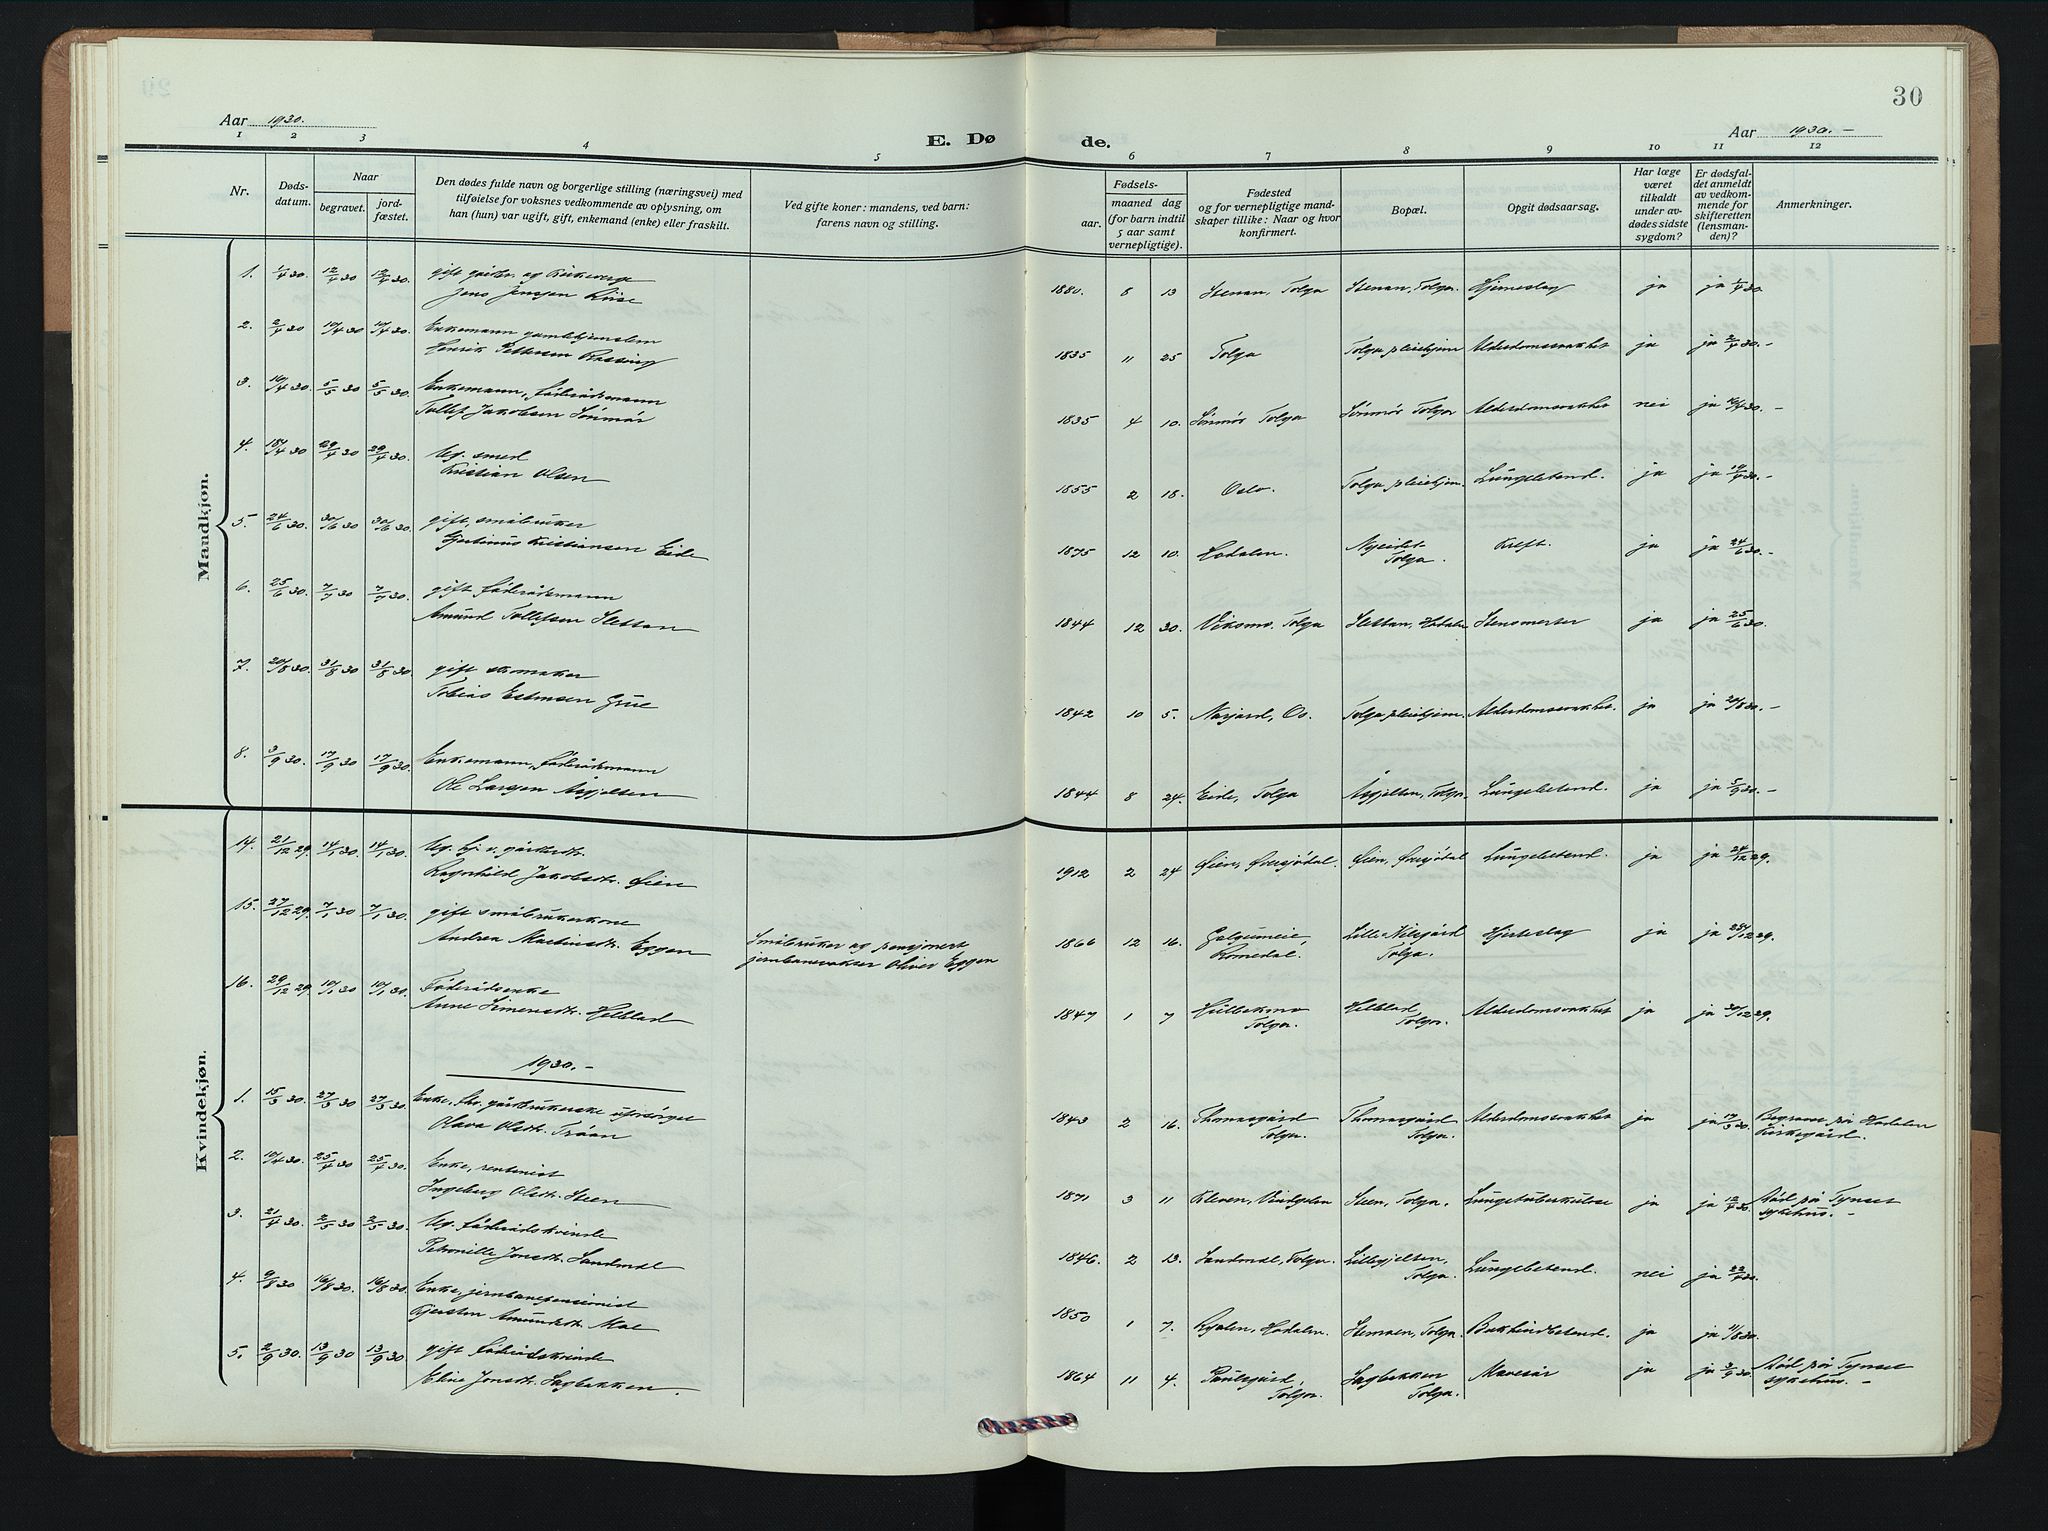 30
Aar 1930.
E. Dø de.
Aar 1930.-
1 2 3 4 5 6 7 8 9 10 11 12
Nr.
Døds-
datum.
Naar
begravet.
jord-
fæstet.
Den dødes fulde navn og borgerlige stilling (næringsvei) med
tilføielse for voksnes vedkommende av oplysning, om
han (hun) var ugift, gift, enkemand (enke) eller fraskilt.
Ved gifte koner: mandens, ved barn:
farens navn og stilling.
Fødsels-
aar.
maaned dag
(for barn indtil
5 aar samt
vernepligtige).
Fødested
og for vernepligtige mand-
skaper tillike: Naar og hvor
konfirmert.
Bopæl.
Opgit dødsaarsag.
Har læge
været
tilkaldt
under av-
dødes sidste
sygdom?
Er dødsfal-
det anmeldt
av vedkom-
mende for
skifteretten
(lensman-
den)?
Anmerkninger.
Mandkjøn.
1. 1/4 30 12/4 30 12/4 30. gift gårdbr. og Kirkeverge
Jens Jensen
1880. 8 13 Stenan, Tolga Stenan, Tolga. Hjerneslag ja ja 1/4 30.
2. 2/4 30 10/4 30 10/4 30. Enkemann gamlehjemslem
Henrik Pettersen
1835 11 25 Tolga Tolga pleiehjem Alderdomssvakhet ja ja 2/4 30.-
3. 10/4 30 5/5 30 5/5 30. Enkemann, føderådsmann
Tollef Jakobsen Sønmør
1835 4 10. Sønmør Tolga Sønmør Tolga Alderdomssvakhet nei ja 10/4 30.-
4. 18/4 30 29/4 30 29/4 30. Ug. smed
Kristian Olsen
1855 2 18. Oslo. Tolga pleiehjem. Lungebetend. ja ja 19/4 30.-
5. 24/6 30. 30/6 30 30/6 30. gift, småbruker
Kristiansen Eide
1875 12 10. Hodalen. Nyeidet Tolga. Kreft. ja ja 24/6 30.-
6. 25/6 30. 7/7 30 7/7 30. gift føderådsmann
Amund Tollefsen Slettan
1844 12 30. Viksmo, Tolga Slettan, Hodalen Stensmerter ja ja 25/6 30.
7. 20/8 30. 31/8 30 31/8 30 gift skomaker
Tobias Estensen Grue
1842 10 5. Narjord, Os. Tolga pleiehjem Alderdomssvakhet. ja ja 20/8 30.-
8. 3/9 30. 17/9 30 17/9 30. Enkemann, føderådsmann
Ole Larsen
1844 8 24. Eide, Tolga Tolga. Lungebetend. ja ja 5/9 30.-
Kvindekjøn.
14. 21/12 29. 14/1 30. 14/1 30. Ug. hj. v. gårdbrdtr.
Ragnhild Jakobsdtr. Øien
1912 2 24 Øien, Øversjødal. Øien, Øversjødal Lungebetend. ja ja 24/12 29.
15. 27/12 29. 7/1 30 7/1 30. gift småbrukerkone
Andrea Martinusdtr. Eggen
Småbruker og pensjonert
jernbanevokter Oliver Eggen
1866 12 16. Romedal. Lille Nilsgård Tolga. Hjerteslag ja ja 29.
16. 29/12 29 10/1 30 10/1 30. Føderådsenke
Anne Simensdtr. Helstad
1847 1 7 Hulbekmo Tolga. Helstad Tolga. Alderdomssvakhet ja ja 30/12 29.
1930.-
1. 15/3 30. 27/3 30 27/3 30. Enke, fhv. gårdbrukerske
Olava Olsdtr. Trøan
1843 2 16. Thomasgård Tolga. Thomasgård Tolga. Alderdomssvakhet ja ja 17/3 30. Begravet på Hodalen
Kirkegård.
2. 10/4 30. 25/4 30 25/4 30. Enke, rentenist
Ingeborg Olsdtr. Steen
1871 3 11 Kleven, Vingelen Steen, Tolga. Lungetuberkulose ja ja 12/4 30. Død på Tynset
sykehus.-
3. 21/4 30. 2/5 30 2/5 30. Ug. føderådskvinde
Petronille Jonsdtr. Sandmæl
1846. 2 13. Sandmæl, Tolga. Lillegjelten, Tolga. Lungebetend. nei ja 22/4 30.
4. 9/8 30 16/8 30. 16/8 30. Enke, jernbanepensionist
Kjersten Amundsdtr. Moe
1850 1 7. Hodalen. Stemoen, Tolga. ja ja 11/8 30.
5. 2/9 30. 13/9 30 13/9 30 gift føderådskvinde
Eline Jonsdtr. Sagbakken.
1864 11 4. Paulsgård, Tolga. Sagbakken Tolga. Mavesår ja ja 3/9 30. Død på Tynset
sykehus.-